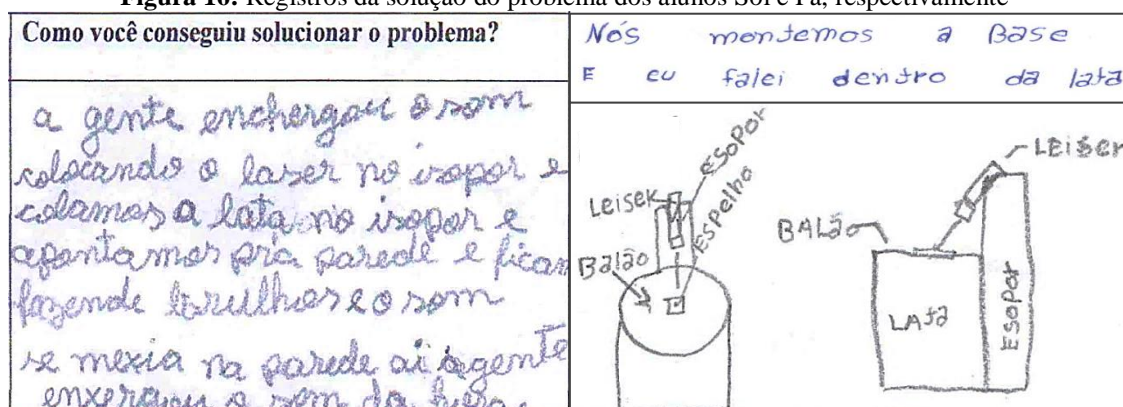 Figura 16: Registros da solução do problema dos alunos Sol e Fa, respectivamente
Como você conseguiu solucionar o problema?
a gente enchergou o som
colocando o laser no isopor e
colamos a lata no isopor e
apontamos pra parede e ficam
fazende barulhos e o som
se mexia na parede ai agente
enxergou o som da
Nós montemos a Base
E eu falei dentro da lata
Leiser
ESoPor
ESPelho
Balão
LEiser
BALão
LAta
ESoPor